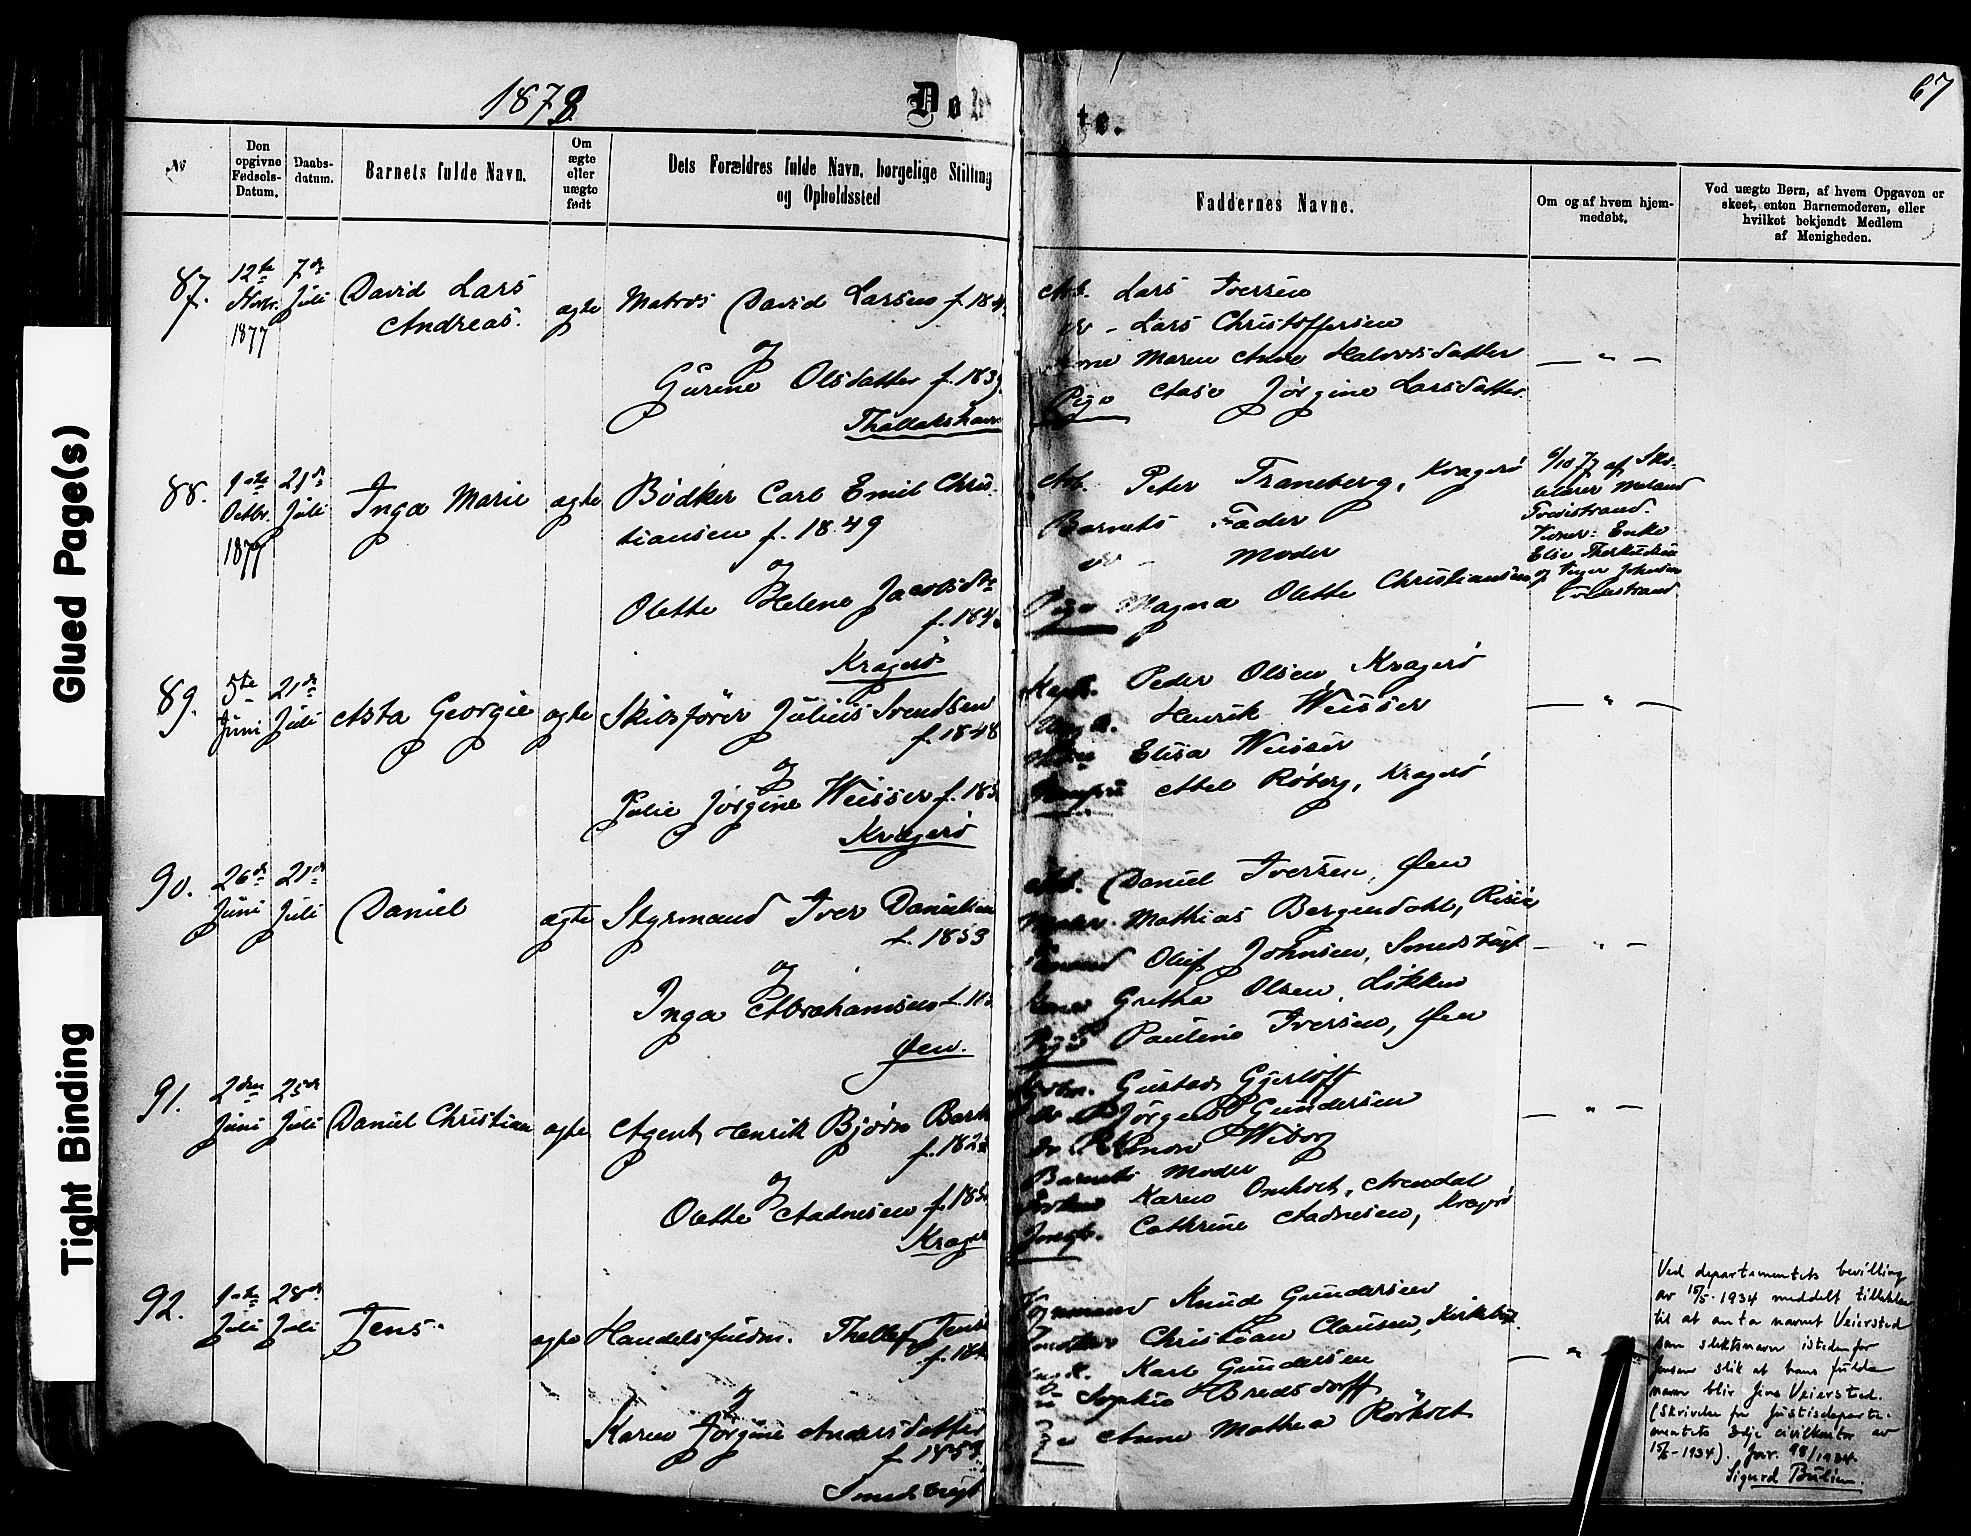 1878
Døbte.
67
No
Den opgivne Fødsels-Datum.
Daabs-datum.
Barnets fulde Navn.
Om ægte eller uægte født
Dets Forældres fulde Navn, borgelige Stilling og Opholdssted
Faddernes Navne.
Om og af hvem hjem-medøbt.
Ved uægte Børn, af hvem Opgaven er skeet, enten Barnemoderen, eller hvilket bekjendt Medlem af Menigheden.
Glued Page(s)
Tight Binding
87. 12te 7de
Novbr. Juli David Lars ægte Matros David Larsen f. 184
1877 Andreas.
og
Gurine Olsdatter f. 1839
Thallakshavn
Arb. Lars Iversen
do - Lars Christoffersen
Kone Maren Anne Halvorsdatter — " —
Pige Aase Jørgine Larsdatter.
88. 1ste 21de
Octbr. Juli Inga Marie ægte Bødker Carl Emil Chris-
1877 tiansen f. 1849
og
Olette Helene Jacobsdtr
f. 184
Kragerø
Arb. Peter Traneberg, Kragerø
Barnets Fader
do - Moder
Pige Magna Olette Christiansen
6/10 77 af Sko-
Tvedestrand.
Else
og Johnsen
Tvedestrand
89. 5te 21de
Juni Juli Asta Georgie ægte Skibsfører Julius Svendsen
f. 1848
og
Julie Jørgine Weisser f. 185
Kragerø
Kapt. Peder Olsen, Kragerø
Ungk. Henrik Weisser — " —
Elisa Weisser
Abel Røberg, Kragerø
90. 26de 21de
Juni Juli Daniel ægte Styrmand Iver Danielsen
f. 1853
og
Inga Abrahamsen f. 18
Øen.
Arb. Daniel Iversen, Øen
Mathias Bergendahl, Risør
Oluf Johnsen, Smedsbugt — " —
Kone Grethe Olsen, Løkken
Pige Pauline Iversen, Øen
91. 2den 25de
Juni Juli Daniel Christian ægte Agent Henrik Bjørn Barth
f. 182
og
Olette Aadnesen f. 185
Kragerø
Gustav Gjerløff
do Jørgen Gundersen — " —
do Wiborg
Barnets Moder
Karen Omholt, Arendal
Jomfr. Cathrine Aadnesen, Kragerø
92. 1ste 28de
Juli Juli Jens. ægte Handelsfuldm. Thellef Jens
f. 18
og
Karen Jørgine Andersdatter
f. 1853
Smedsbugt
Knud Gundersen
Christian Clausen, Kirkebugt.
Karl Gundersen — " —
Sophie Bredsdorff
Anne Mathea Rørholt
Ved departementets bevilling
av 15/5-1934 meddelt tillatelse
til at anta navnet Veiersted
som slektsnavn istedenfor
Jensen slik at hans fulde
navn blir Jens Veiersted.
(Skrivelse fra Justisdeparte-
mentets 3dje civilkontor av
15/5-1934). Jnr. 98/1934.
Sigurd Bulien.